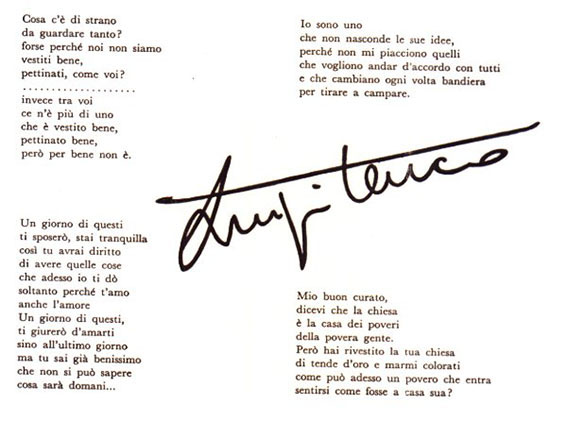 Cosa c'è di strano
da guardare tanto?
forse perché noi non siamo
vestiti bene,
pettinati, come voi?
......................
invece tra voi
ce n'è più di uno
che è vestito bene,
pettinato bene,
però per bene non è.
Io sono uno
che non nasconde le sue idee,
perché non mi piacciono quelli
che vogliono andar d'accordo con tutti
e che cambiano ogni volta bandiera
per tirare a campare.
Luigi Tenco
Un giorno di questi
ti sposerò, stai tranquilla
così tu avrai diritto
di avere quelle cose
che adesso io ti dò
soltanto perché t'amo
anche l'amore
Un giorno di questi,
ti giurerò d'amarti
sino all'ultimo giorno
ma tu sai già benissimo
che non si può sapere
cosa sarà domani...
Mio buon curato,
dicevi che la chiesa
è la casa dei poveri
della povera gente.
Però hai rivestito la tua chiesa
di tende d'oro e marmi colorati
come può adesso un povero che entra
sentirsi come fosse a casa sua?